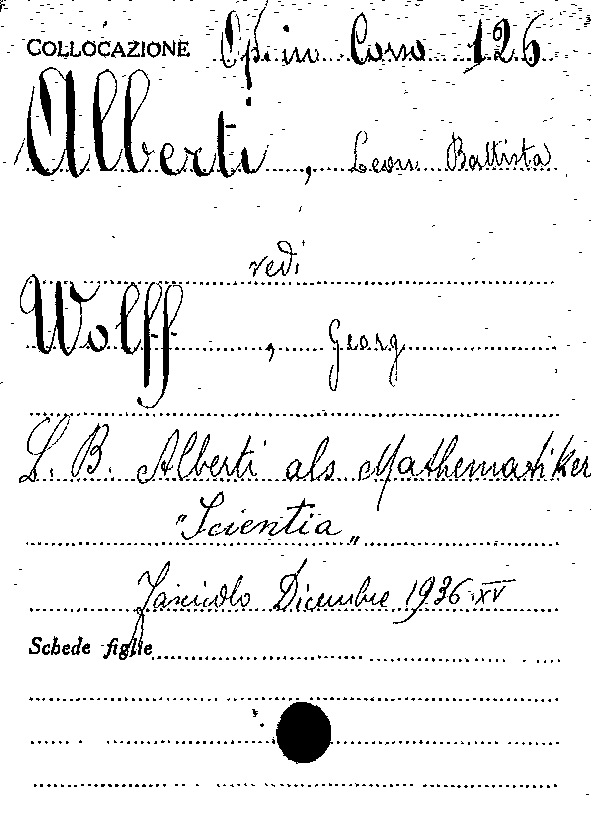 COLLOCAZIONE Op. in Corso 126
Alberti, Leon Battista
vedi
Wolff, Georg
L. B. Alberti als Mathematiker
"Scientia"
Fascicolo Dicembre 1936·XV
Schede figlie